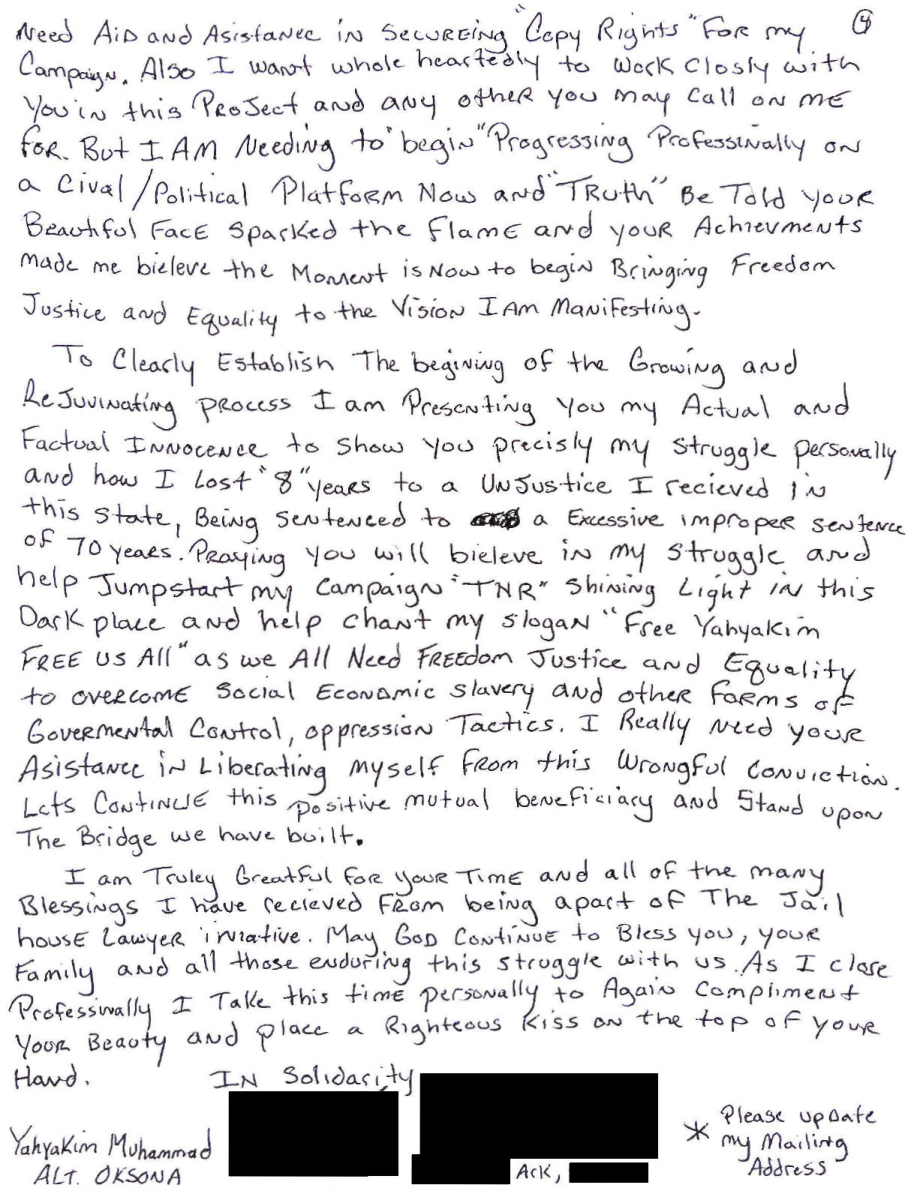 4
Need Aid and Asistance in Secureing "Copy Rights" For my
Campaign. Also I want whole heartedly to work closly with
You in this Project and any other you may call on me
for. But I Am Needing to "begin" Progressing Professinally on
a Cival/Political Platform Now and "Truth" Be Told your
Beautiful Face sparked the flame and your Achievments
made me bieleve the Moment is Now to begin Bringing Freedom
Justice and Equality to the Vision I Am Manifesting.
To Clearly Establish The begining of the Growing and
ReJuvinating process I am Presenting You my Actual and
Factual Innocence to show you precisly my struggle personally
and how I Lost "8" years to a UnJustice I recieved in
this state, Being sentenced to a Excessive improper sentence
of 70 years. Praying you will bieleve in my struggle and
help Jumpstart my Campaign "TNR" Shining Light in this
Dark place and help chant my slogan "Free Yahyakim
Free us All" as we All Need Freedom Justice and Equality
to overcome Social Economic slavery and other forms of
Govermental Control, oppression Tactics. I Really Need your
Asistance in Liberating myself from this Wrongful conviction.
Lets Continue this positive mutual beneficiary and Stand upon
The Bridge we have built.
I am Truley Greatful for your Time and all of the many
Blessings I have recieved From being apart of The Jail
house Lawyer iniative. May God Continue to Bless you, your
Family and all those enduring this struggle with us. As I close
Professinally I Take this time personally to Again Compliment
Your Beauty and place a Righteous Kiss on the top of your
Hand. In Solidarity
Yahyakim Muhammad
ALT. OKSONA
Ark,
* Please update
my Mailing
Address